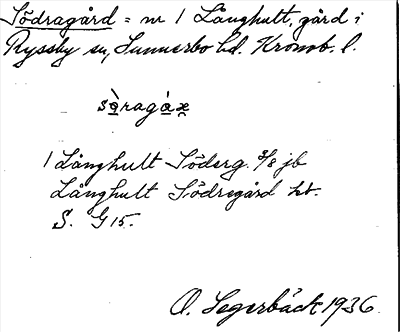 Södragård = nr 1 Långhult, gård i
Ryssby sn, Sunnerbo hd. Kronob. l.
1 Långhult Söderg. 3/8 jb
Långhult Södregård kt.
S. G 15.
O. Segerbäck 1936.